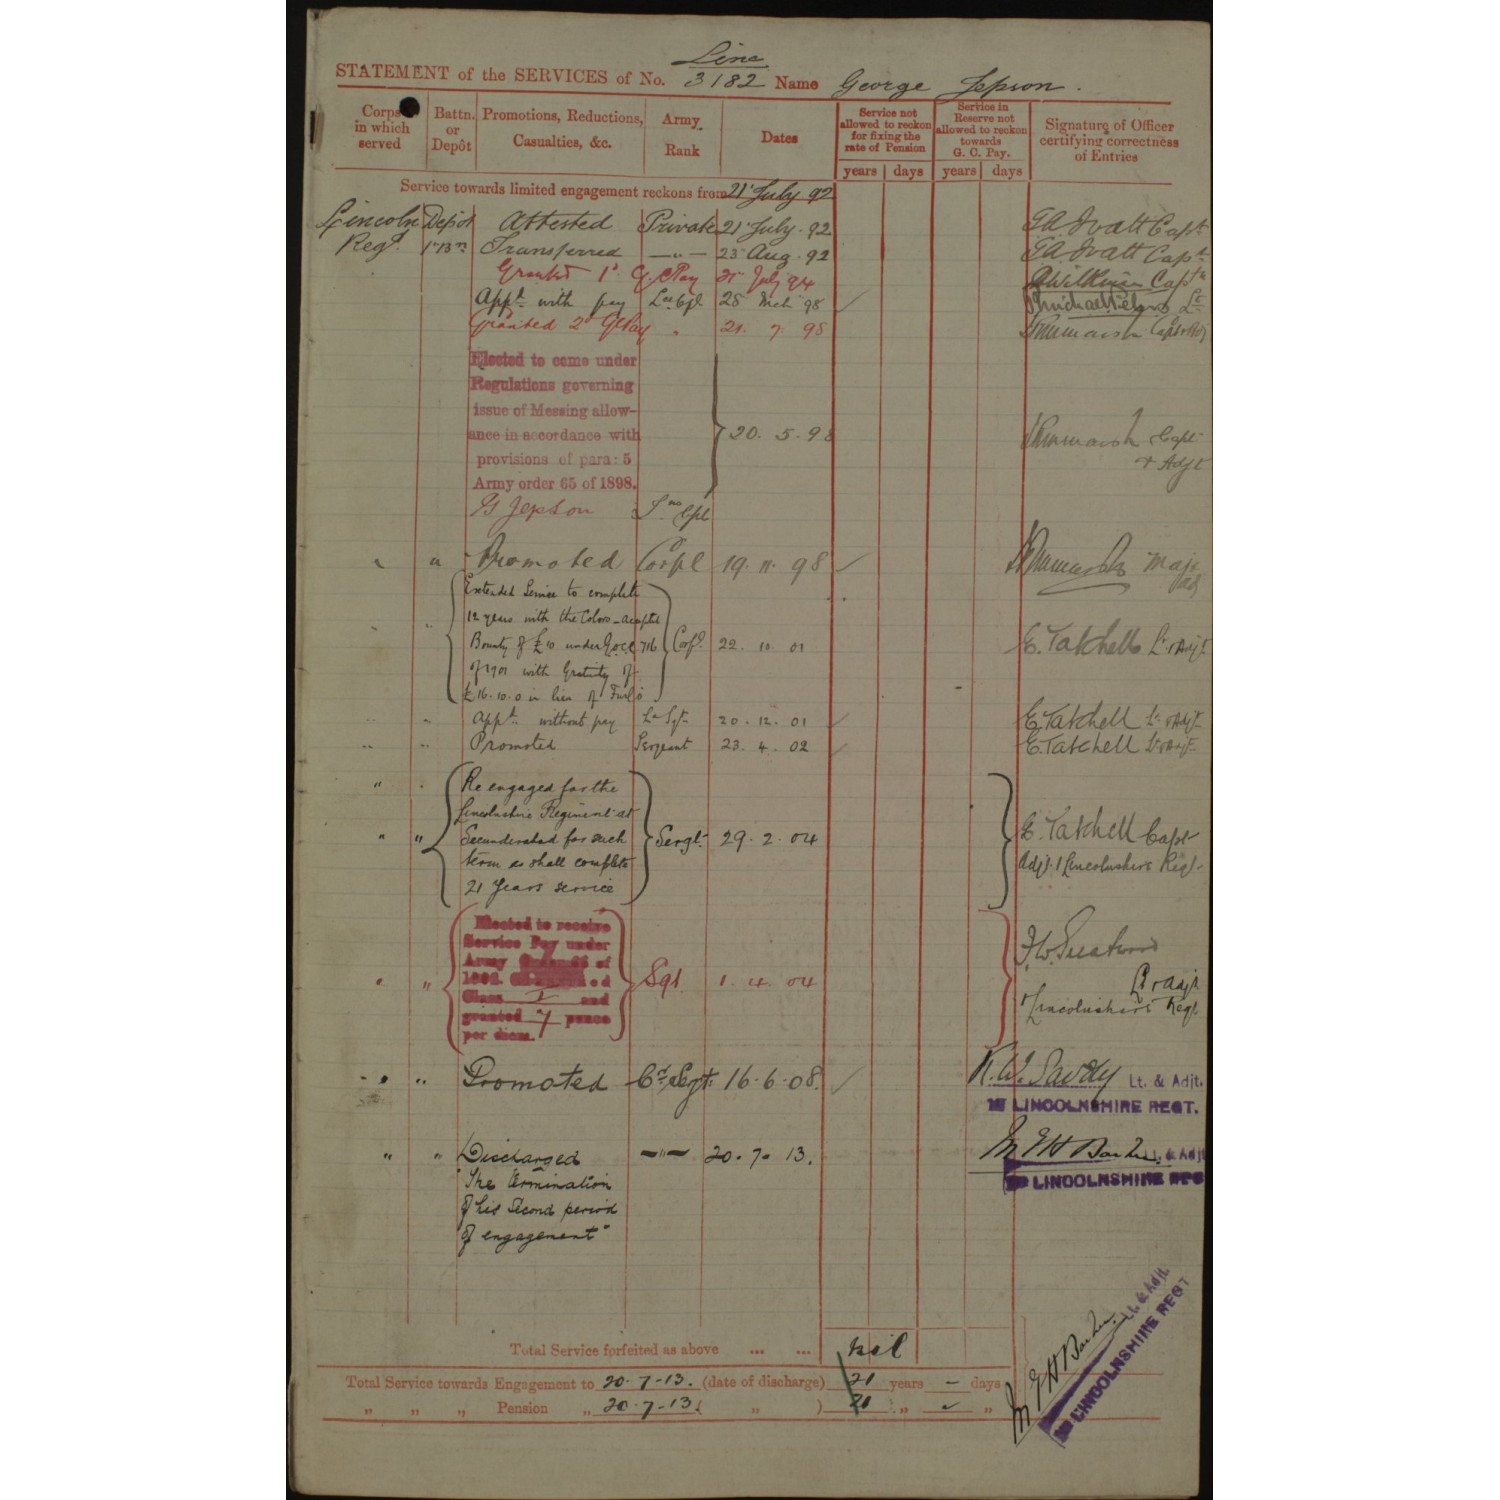 Linc
STATEMENT of the SERVICES of No. 3182 Name George Jepson.
Corps in which served
Battn. or Depôt
Promotions, Reductions, Casualties, &c.
Army Rank
Dates
Service not allowed to reckon for fixing the rate of Pension
Service in Reserve not allowed to reckon towards G. C. Pay.
Signature of Officer certifying correctness of Entries
years days years days
Service towards limited engagement reckons from 21 July 92
Lincoln Depôt Attested Private 21 July 92 Capt
Regt 1 Bn Transferred —"— 23 Aug. 92 Capt
Granted 1st G.C.Pay 21 July 94 Capt
Appt with pay Lce Cpl 28 Mch 98 Lt
Granted 2d GCPay " 21. 7. 98 Capt & Adj
Elected to come under
Regulations governing
issue of Messing allow-
ance in accordance with
provisions of para: 5
Army order 65 of 1898.
20. 5. 98 Capt
& Adjt
G Jepson Lce Cpl
" " Promoted Corpl 19. 11. 98 Major
Adj
Extended Service to complete
12 years with the Colors - accepted
Bounty of £10 under G.O.C.C 716
of 1901 with Gratuity of
£16.10.0 in lieu of Furlo
" " Corpl 22. 10. 01 E. Tatchell Lt & Adjt
" " Appt without pay Lce Sgt 20. 12. 01 E. Tatchell Lt & Adjt
" " Promoted Sergeant 23. 4. 02 E. Tatchell Lt & Adjt
Re engaged for the
Lincolnshire Regiment at
Secunderabad for such
term as shall complete
21 years service
" " Sergt 29. 2. 04 E. Tatchell Capt
Adjt. 1 Lincolnshire Regt
Elected to receive
Service Pay under
Army Order 66 of
1902.
Class I and
granted 7 pence
per diem.
" " Sgt 1. 4. 04 Lt & Adjt
Lincolnshire Regt.
" " Promoted Cr Sergt 16. 6. 08. Lt. & Adjt.
LINCOLNSHIRE REGT.
" " Discharged —"— 20. 7. 13. & Adjt
"The termination LINCOLNSHIRE REG
of his Second period
of engagement"
Total Service forfeited as above ... ... Nil
Total Service towards Engagement to 20.7.13. (date of discharge) 21 years — days
" " " Pension " 20.7.13. ( " ) 21 " " "
Lt. & Adjt.
LINCOLNSHIRE REGT